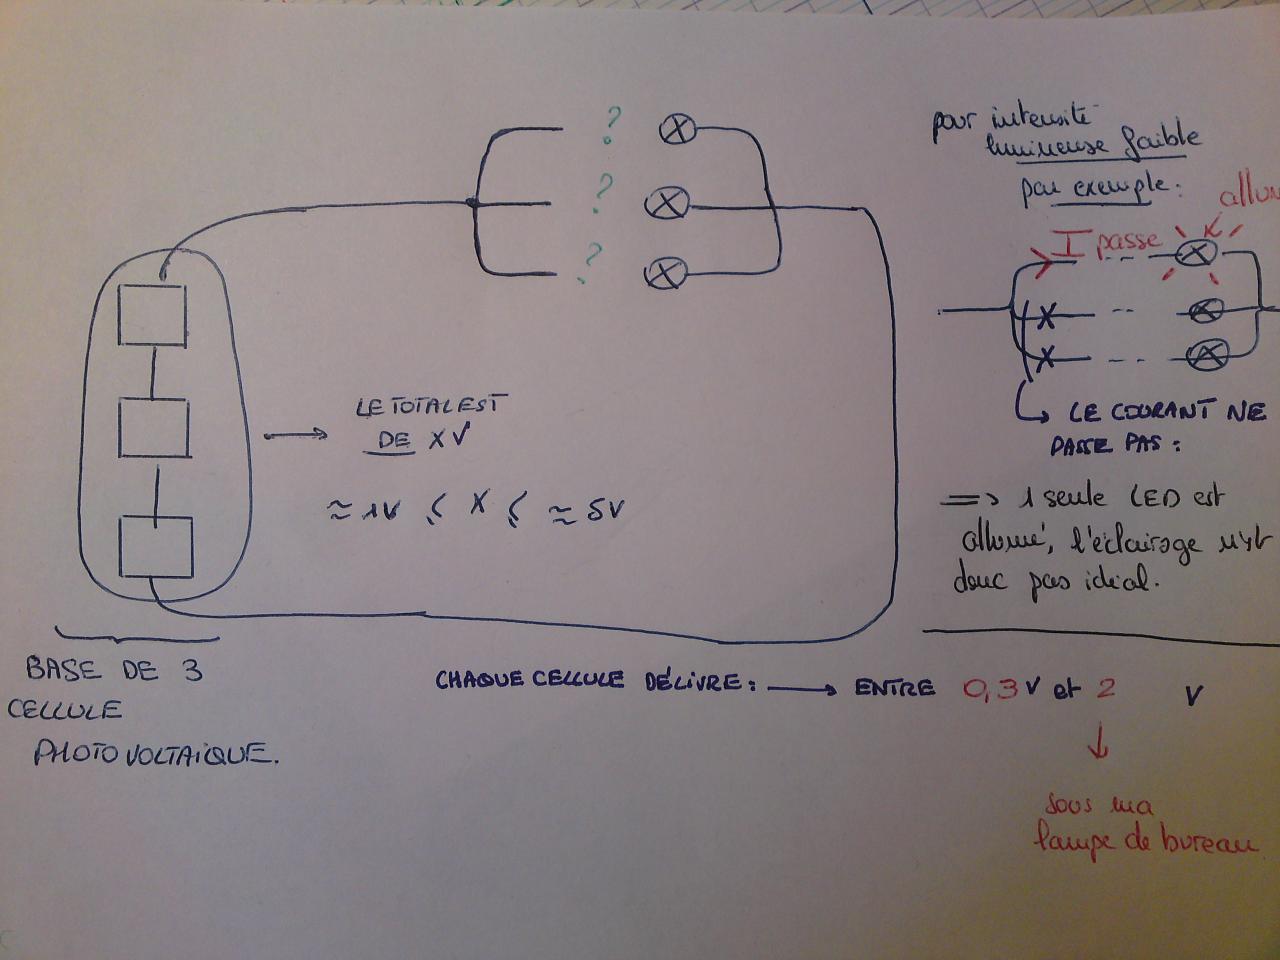 ? 
?
?
LE TOTAL EST
DE X V
≈ 1V < X < ≈ 5V
BASE DE 3
CELLULE
PHOTOVOLTAÏQUE.
CHAQUE CELLULE DÉLIVRE : → ENTRE 0,3 V et 2 V
sous ma
lampe de bureau
pour intensité
lumineuse faible
par exemple :
I passe
LE COURANT NE
PASSE PAS :
=> 1 seule LED est
allumé, l'éclairage n'est
donc pas idéal.